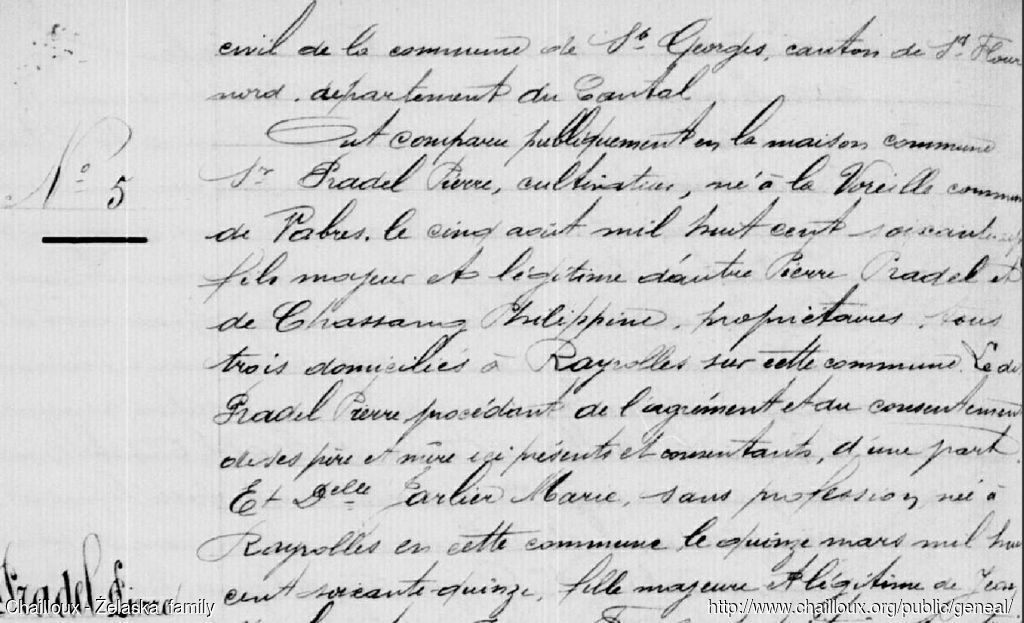 civil de la commune de St Georges, canton de St Flour
nord, département du Cantal
Ont comparu publiquement en la maison commune
Sr Pradel Pierre, cultivateur, né à la commun
de Vabres, le cinq août mil huit cent soixante
fils majeur et légitime d'autre Pierre Pradel et
de Chassang Philippine, propriétaires, tous
trois domiciliés à Rayrolles sur cette commune. Le dt
Pradel Pierre, procédant de l'agrément et du consentement
de ses père et mère ici présents et consentants, d'une part.
Et Delle Marie, sans profession, née à
Rayrolles en cette commune le quinze mars mil hui
cent soixante-quinze, fille majeure et légitime de Jean
No 5
Pradel
Chailloux - Żelaska family
http://www.chailloux.org/public/geneal/